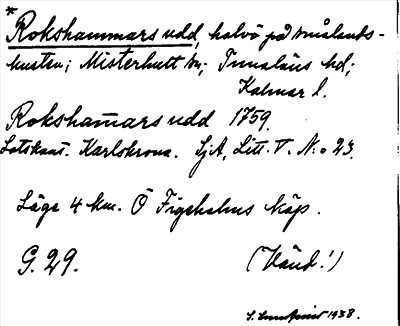 *
Rokshammars udd, halvö på smålands-
kusten; Misterhult sn; Tunaläns hd;
Kalmar l.
Rokshamars udd 1759.
Lotskont. Karlskrona. SjA, Litt. V. N:o 23.
Läge 4 km. Ö Figeholms köp.
G. 29.
(Vänd!)
S. Lundqvist 1938.